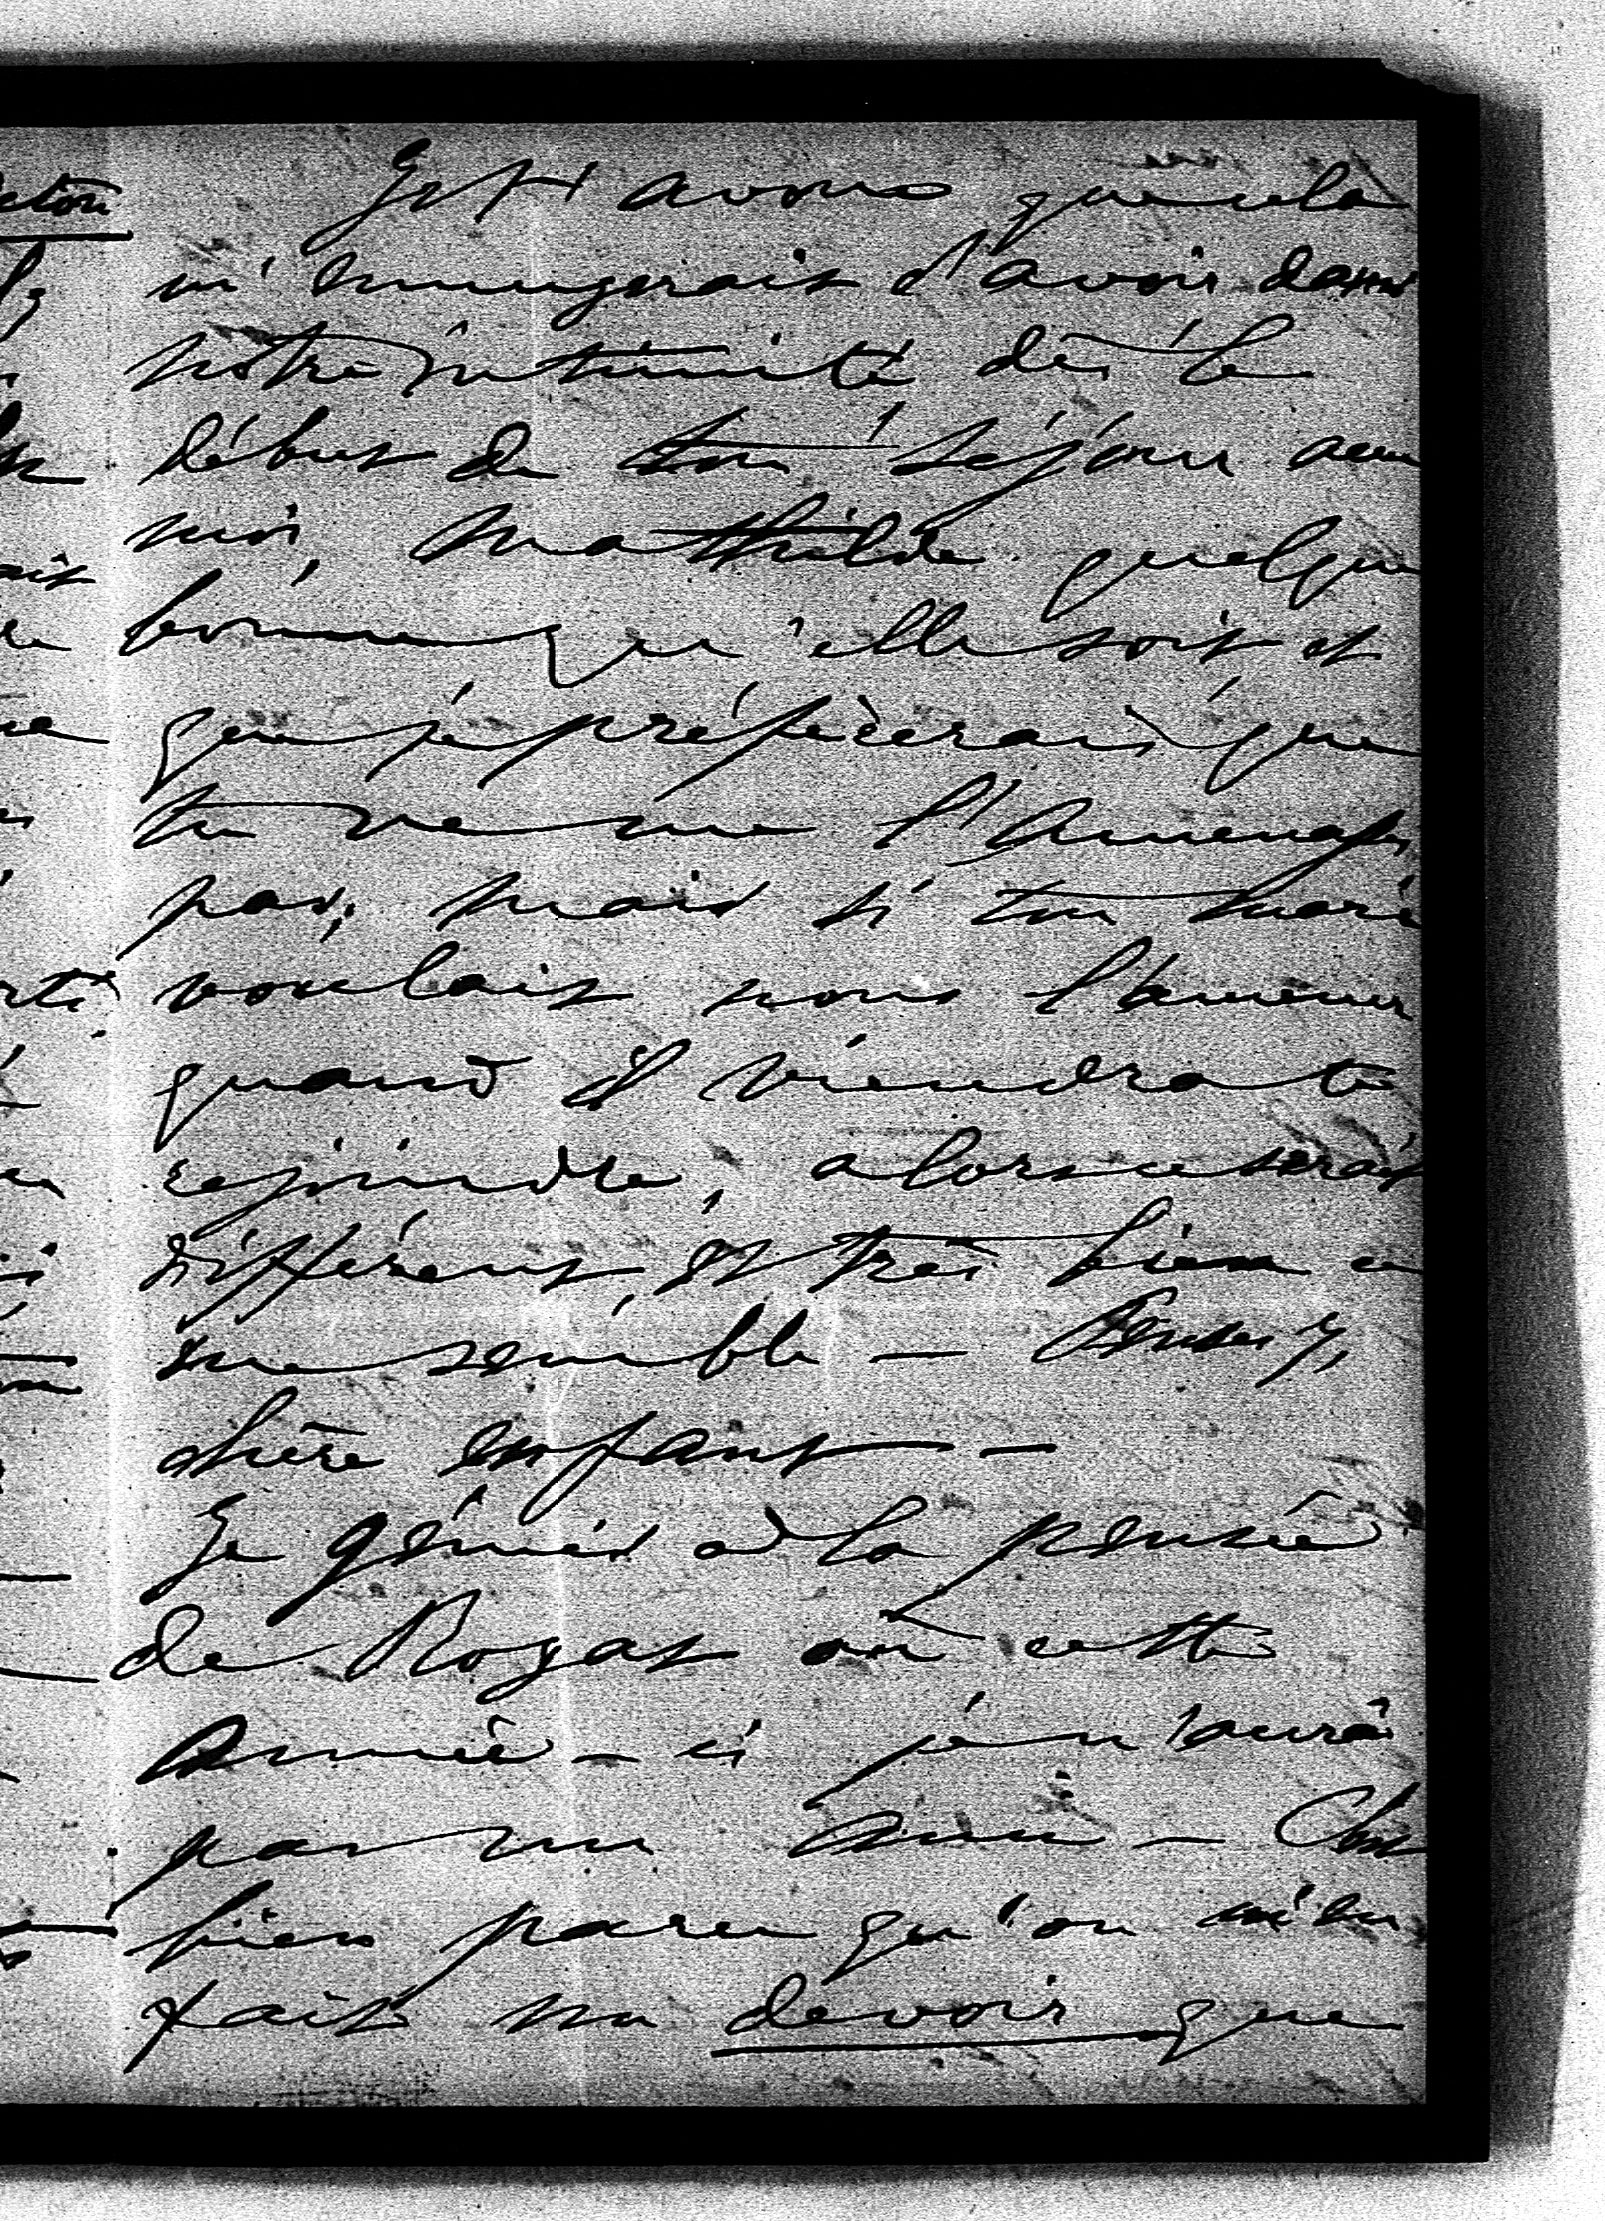 Je t'avoue que cela
m'ennuyerait d'avoir dans
notre intimité dès le
début de ton séjour avec
moi, Mathilde quelque
bonne qu'elle soit et
que je préfèrerais que
tu ne me l'amenas
pas; mais si ton mari
voulait nous l'amener
quand il viendra te
rejoindre, alors ce serait
différent et très bien ce
me semble — Penses y,
chère enfant —
Je gémis à la pensée
de Royat où cette
année-ci je n'aurai
pas un ami — C'est
bien parce qu'on m'en
fait un devoir que